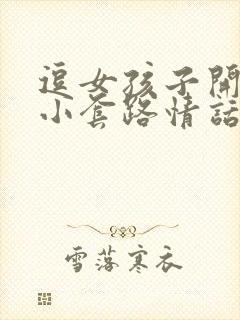 逗女孩子開
小套路情話
雪落寒衣